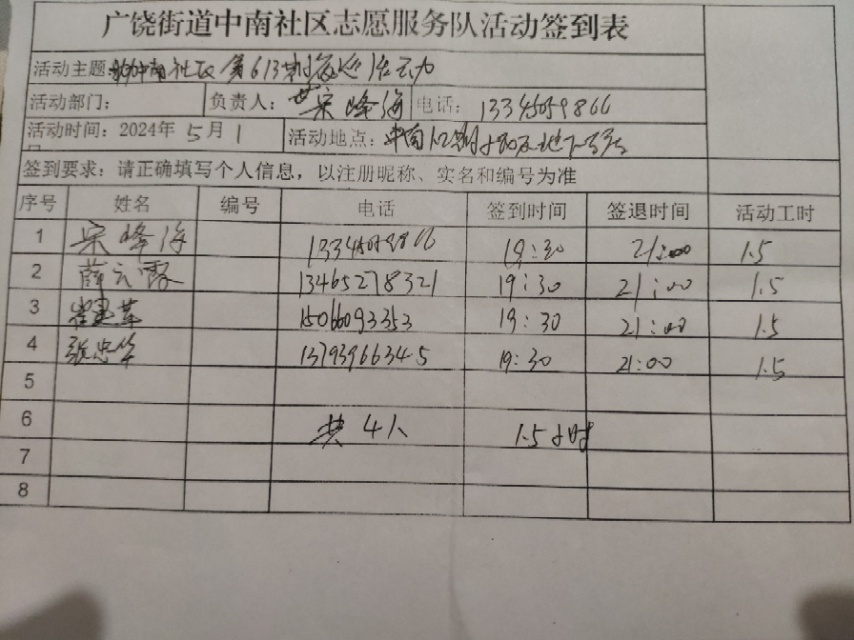 广饶街道中南社区志愿服务队活动签到表
活动主题: 中南社区第613期夜巡活动
活动部门: 负责人: 宋峰海 电话: 13345059866
活动时间: 2024年 5月 1 活动地点: 中南
签到要求: 请正确填写个人信息，以注册昵称、实名和编号为准
序号 姓名 编号 电话 签到时间 签退时间 活动工时
1 宋峰海 13345059866 19:30 21:00 1.5
2 薛云霞 13465278321 19:30 21:00 1.5
3 15066093353 19:30 21:00 1.5
4 张忠华 13793966345 19:30 21:00 1.5
5
6 共 4人 1.5小时
7
8